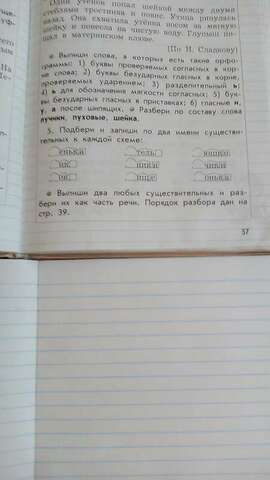 Один утёнок попал шейкой между двумя
стеблями тростника и повис. Утка ринулась
назад. Она схватила утёнка носом за мягкую
шейку и понесла на чистую воду. Глупыш пи-
щал в материнском клюве.
(По Н. Сладкову)
Выпиши слова, в которых есть такие орфо-
граммы: 1) буквы проверяемых согласных в кор-
не слова; 2) буквы безударных гласных в корне,
проверяемых ударением; 3) разделительный ь;
4) ь для обозначения мягкости согласных; 5) бук-
вы безударных гласных в приставках; 6) гласные и,
у, а после шипящих. Разбери по составу слова
пучики, пуховые, шейка.
5. Подбери и запиши по два имени существи-
тельных к каждой схеме:
еньк тель ишк
ик ник чик
ищ оньк
Выпиши два любых существительных и раз-
бери их как часть речи. Порядок разбора дан на
стр. 39.
37